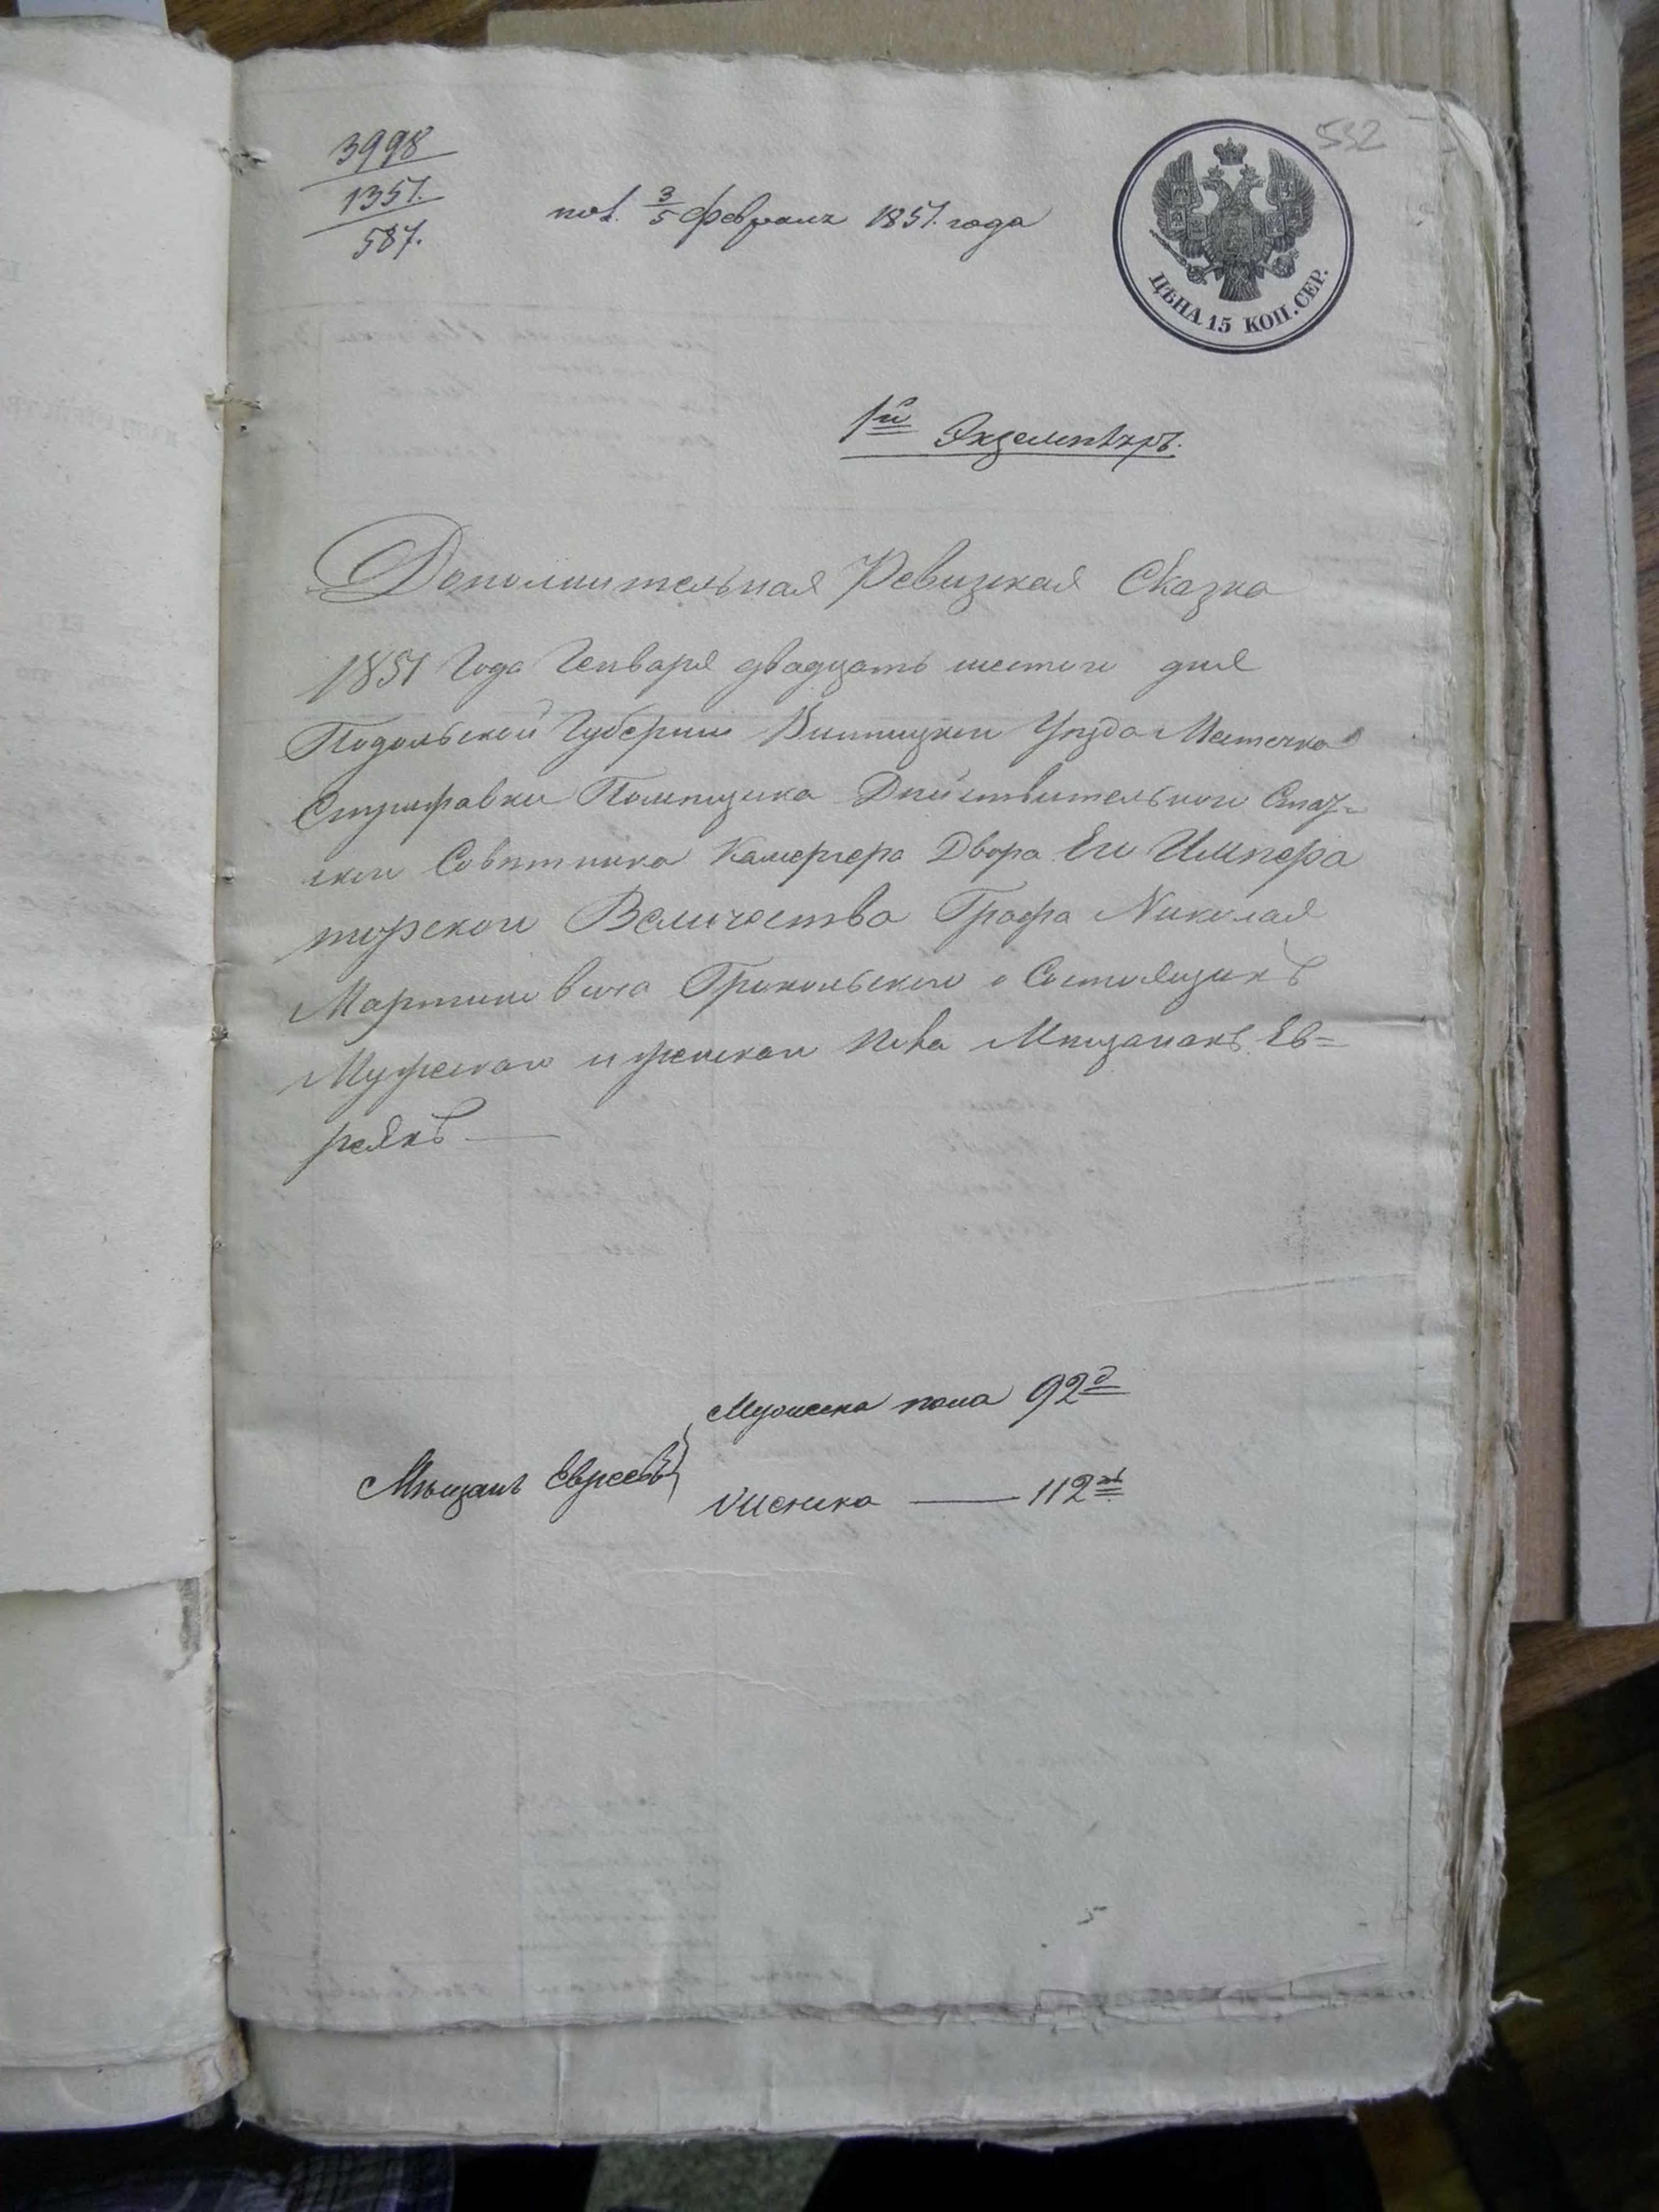 3998
1351.
587.
пол. 3/5 февраля 1851. года
532
ЦѢНА 15 КОП. СЕР.
1й Экземпляръ.
Дополнительная Ревизкая Сказка
1851 Года Генваря двадцать шестого дня
Подольской Губернии Винницкого Уезда Местечка
Стрижавки Помещика Действительного Стат=
ского Советника Камергера Двора Его Импера
торского Величества Графа Николая
Мартиновича Грохольского о Состоящихъ
Мужеского и женского пола Мещанахъ Ев=
реяхъ
Мужеска пола 92
Мѣщанъ Евреевъ
Женска 112